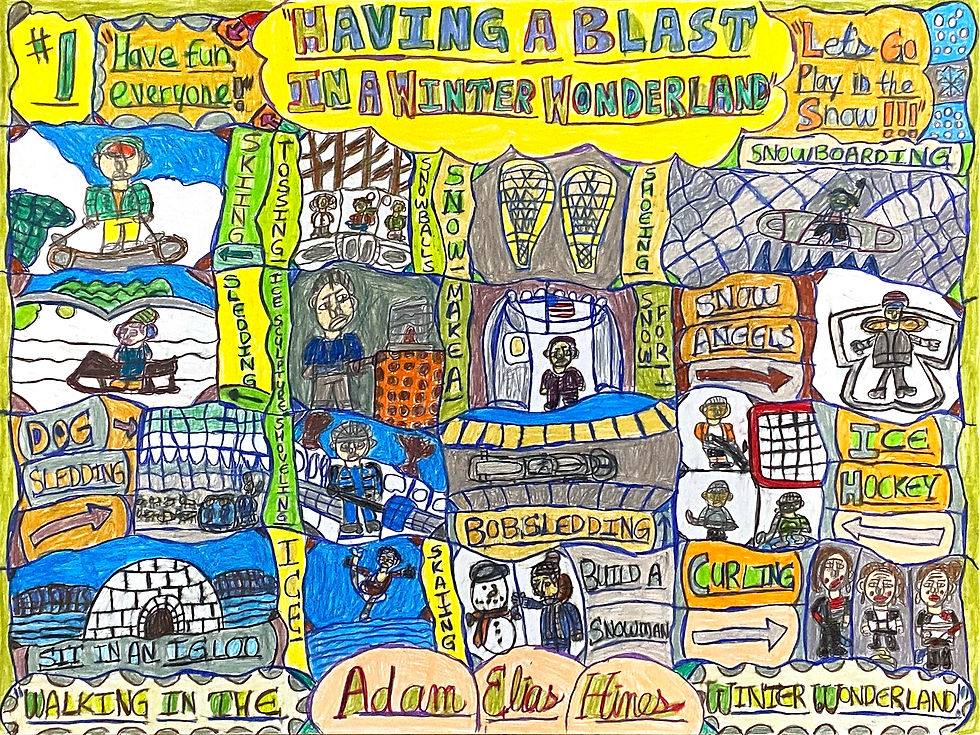 #1
"Have fun,
everyone!"
"HAVING A BLAST
IN A WINTER WONDERLAND"
"Let's Go
Play in the
Snow!!!"
SKIING
TOSSING
SNOWBALLS
SNOW-
SHOEING
SNOWBOARDING
SLEDDING
ICE SCULPTURE
MAKE A
SNOW FORT
SNOW
ANGELS
DOG
SLEDDING
SHOVELING
BOBSLEDDING
ICE
HOCKEY
SIT IN AN IGLOO
ICE
SKATING
BUILD A
SNOWMAN
CURLING
"WALKING IN THE
Adam Elias Hines
WINTER WONDERLAND"